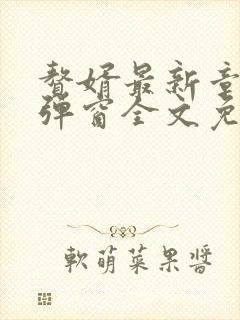 赘婿最新章
弹窗全文免
軟萌菜果醬